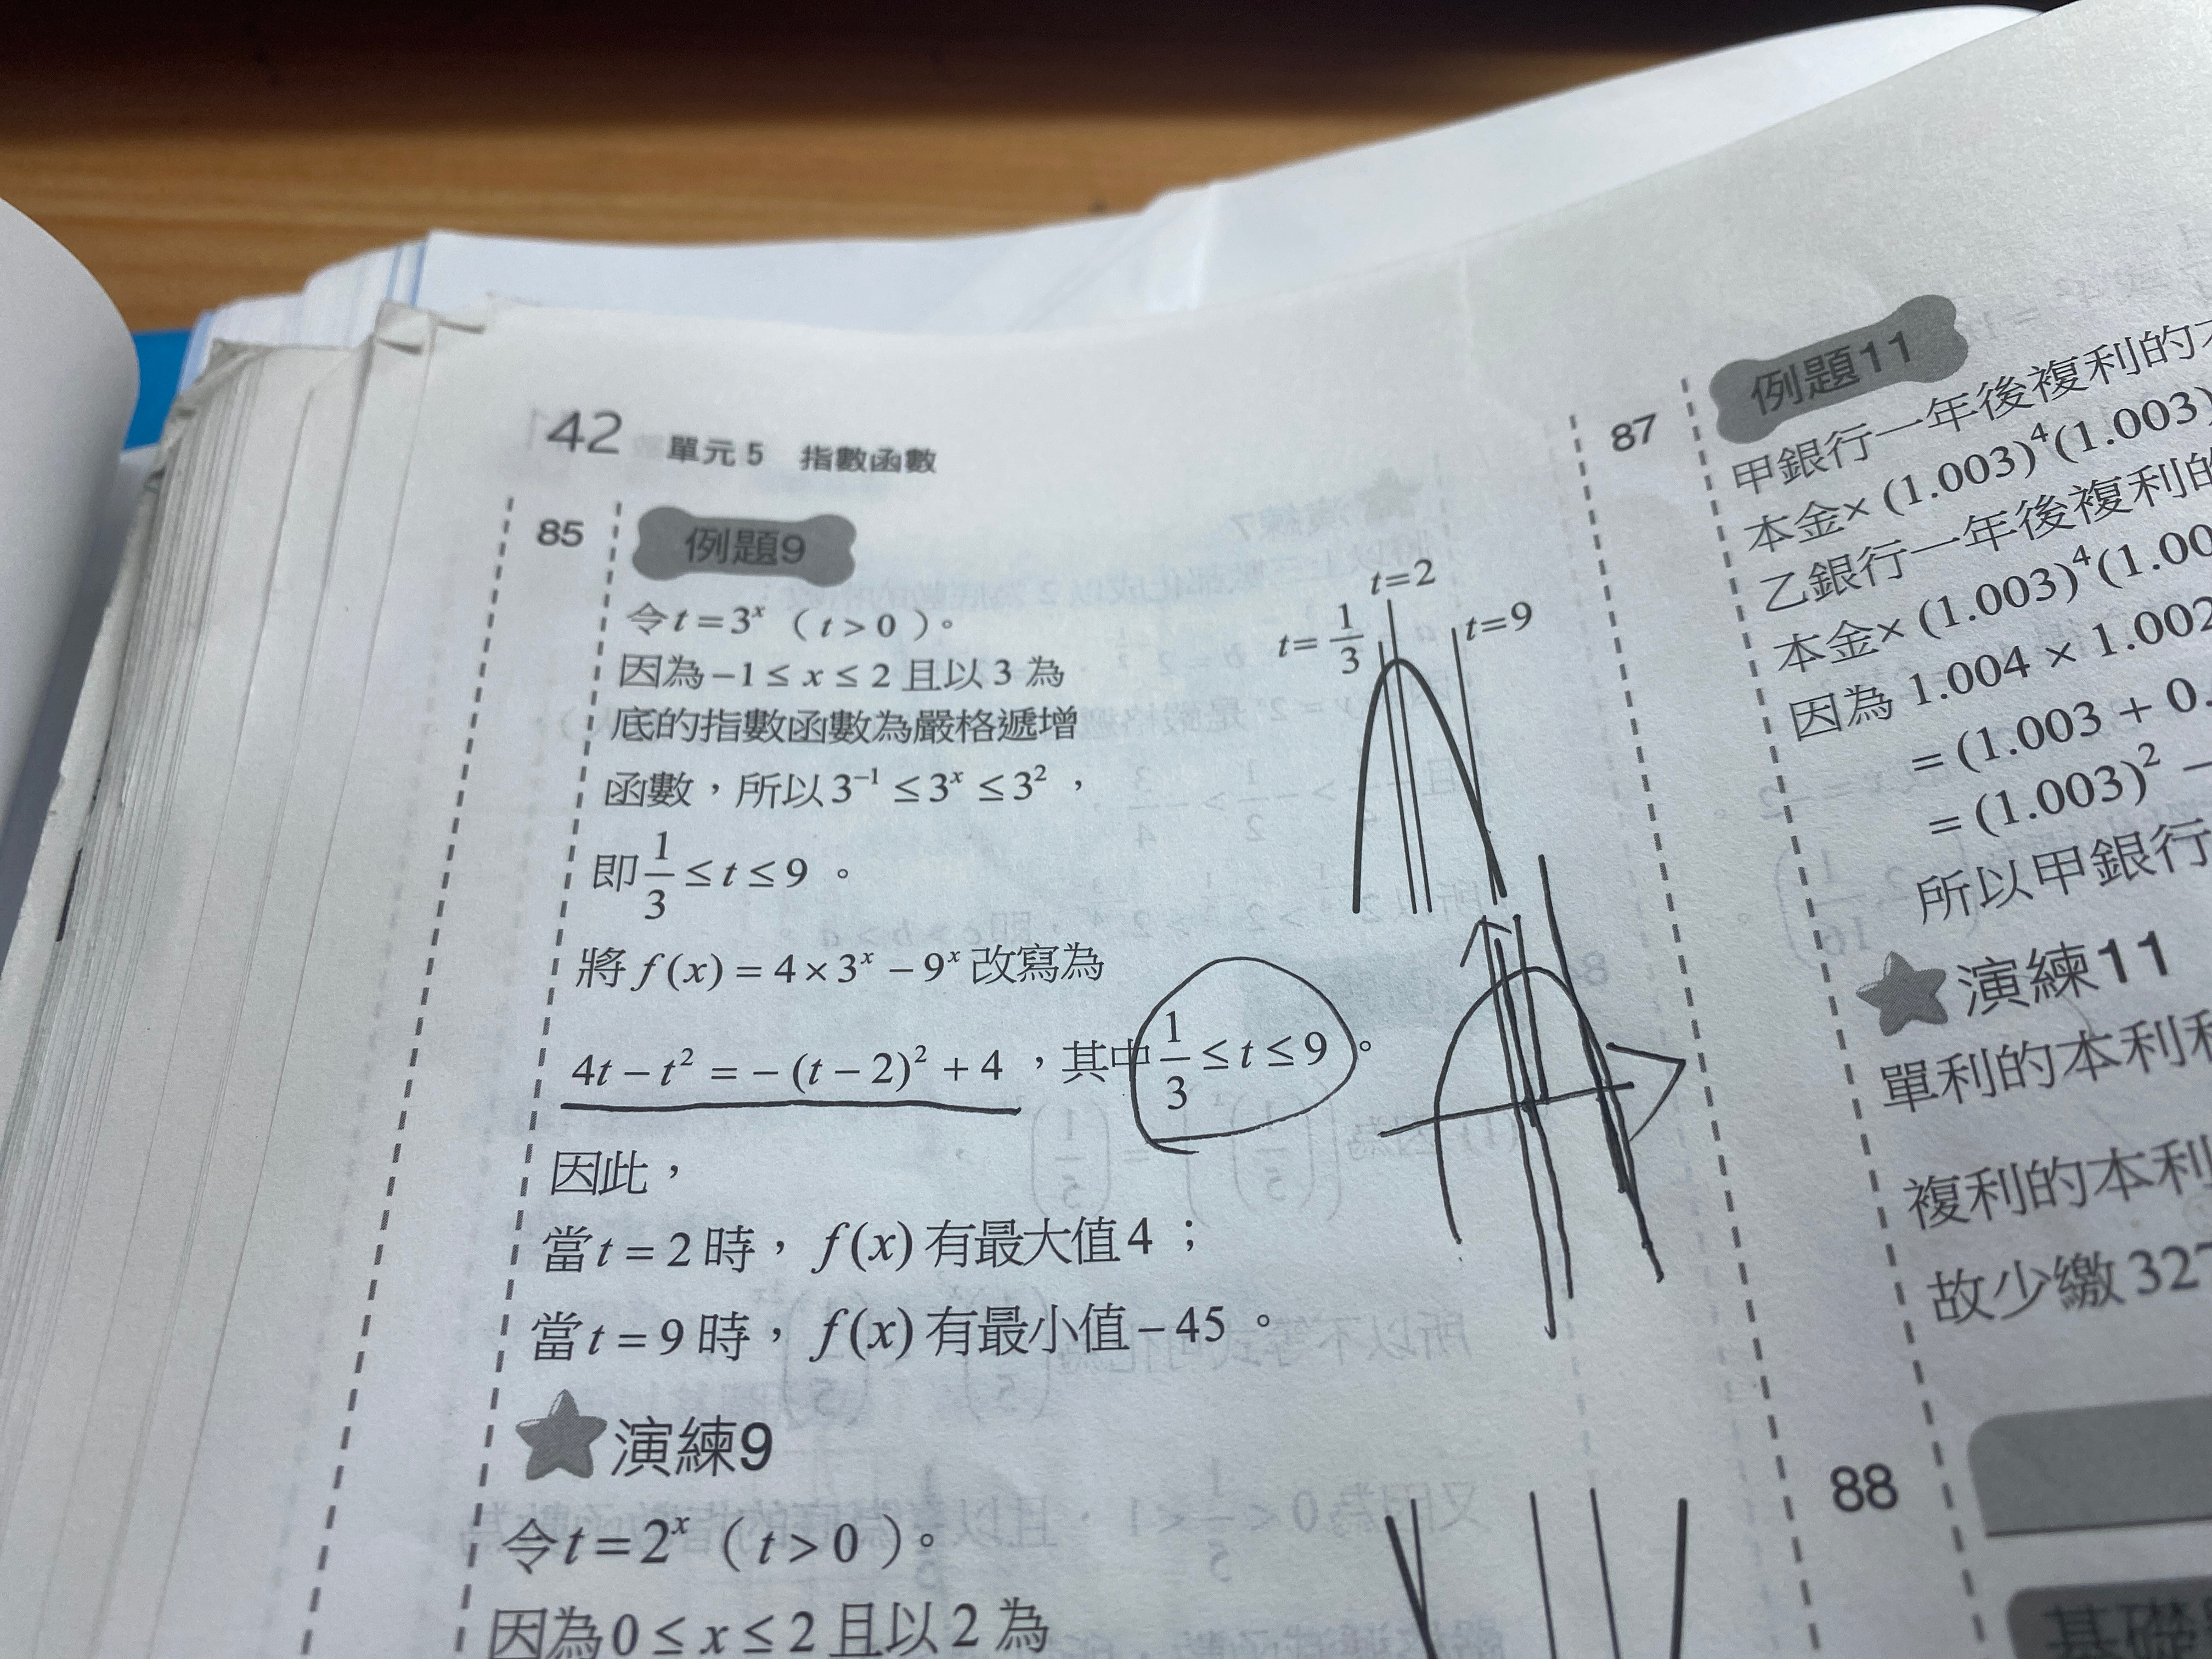 142 單元 5 指數函數
85
例題9
令 t = 3ˣ ( t > 0 )。
因為 −1 ≤ x ≤ 2 且以 3 為
底的指數函數為嚴格遞增
函數，所以 3⁻¹ ≤ 3ˣ ≤ 3²，
即 1/3 ≤ t ≤ 9 。
將 f(x) = 4 × 3ˣ − 9ˣ 改寫為
4t − t² = − (t − 2)² + 4 ，其中 1/3 ≤ t ≤ 9 。
因此，
當 t = 2 時，f(x) 有最大值 4 ；
當 t = 9 時，f(x) 有最小值 − 45 。
t = 1/3
t = 2
t = 9
演練9
令 t = 2ˣ ( t > 0 )。
因為 0 ≤ x ≤ 2 且以 2 為
87
例題11
甲銀行一年後複利的本
本金× (1.003)⁴(1.003)
乙銀行一年後複利的
本金× (1.003)⁴(1.00
因為 1.004 × 1.002
= (1.003 + 0.
= (1.003)² −
所以甲銀行
演練11
單利的本利和
複利的本利
故少繳 327
88
基礎